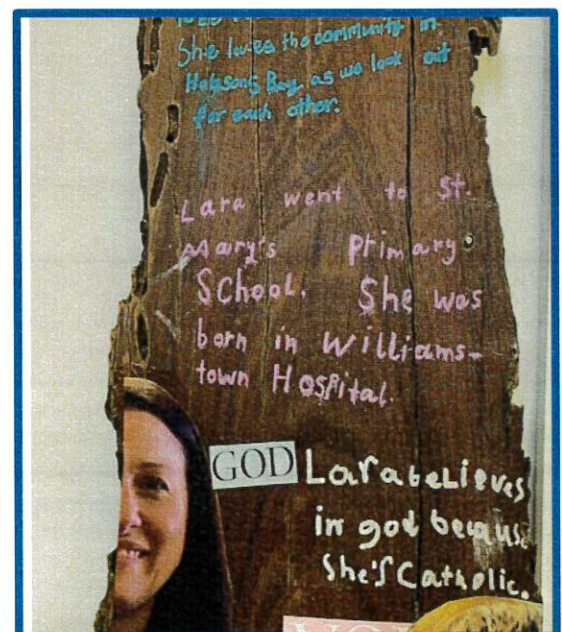 She loves the community in
Hobsons Bay as we look out
for each other.
Lara went to St.
Mary's Primary
School. She was
born in Williams-
town Hospital.
GOD
Lara believes
in god becaus
she's Catholic.